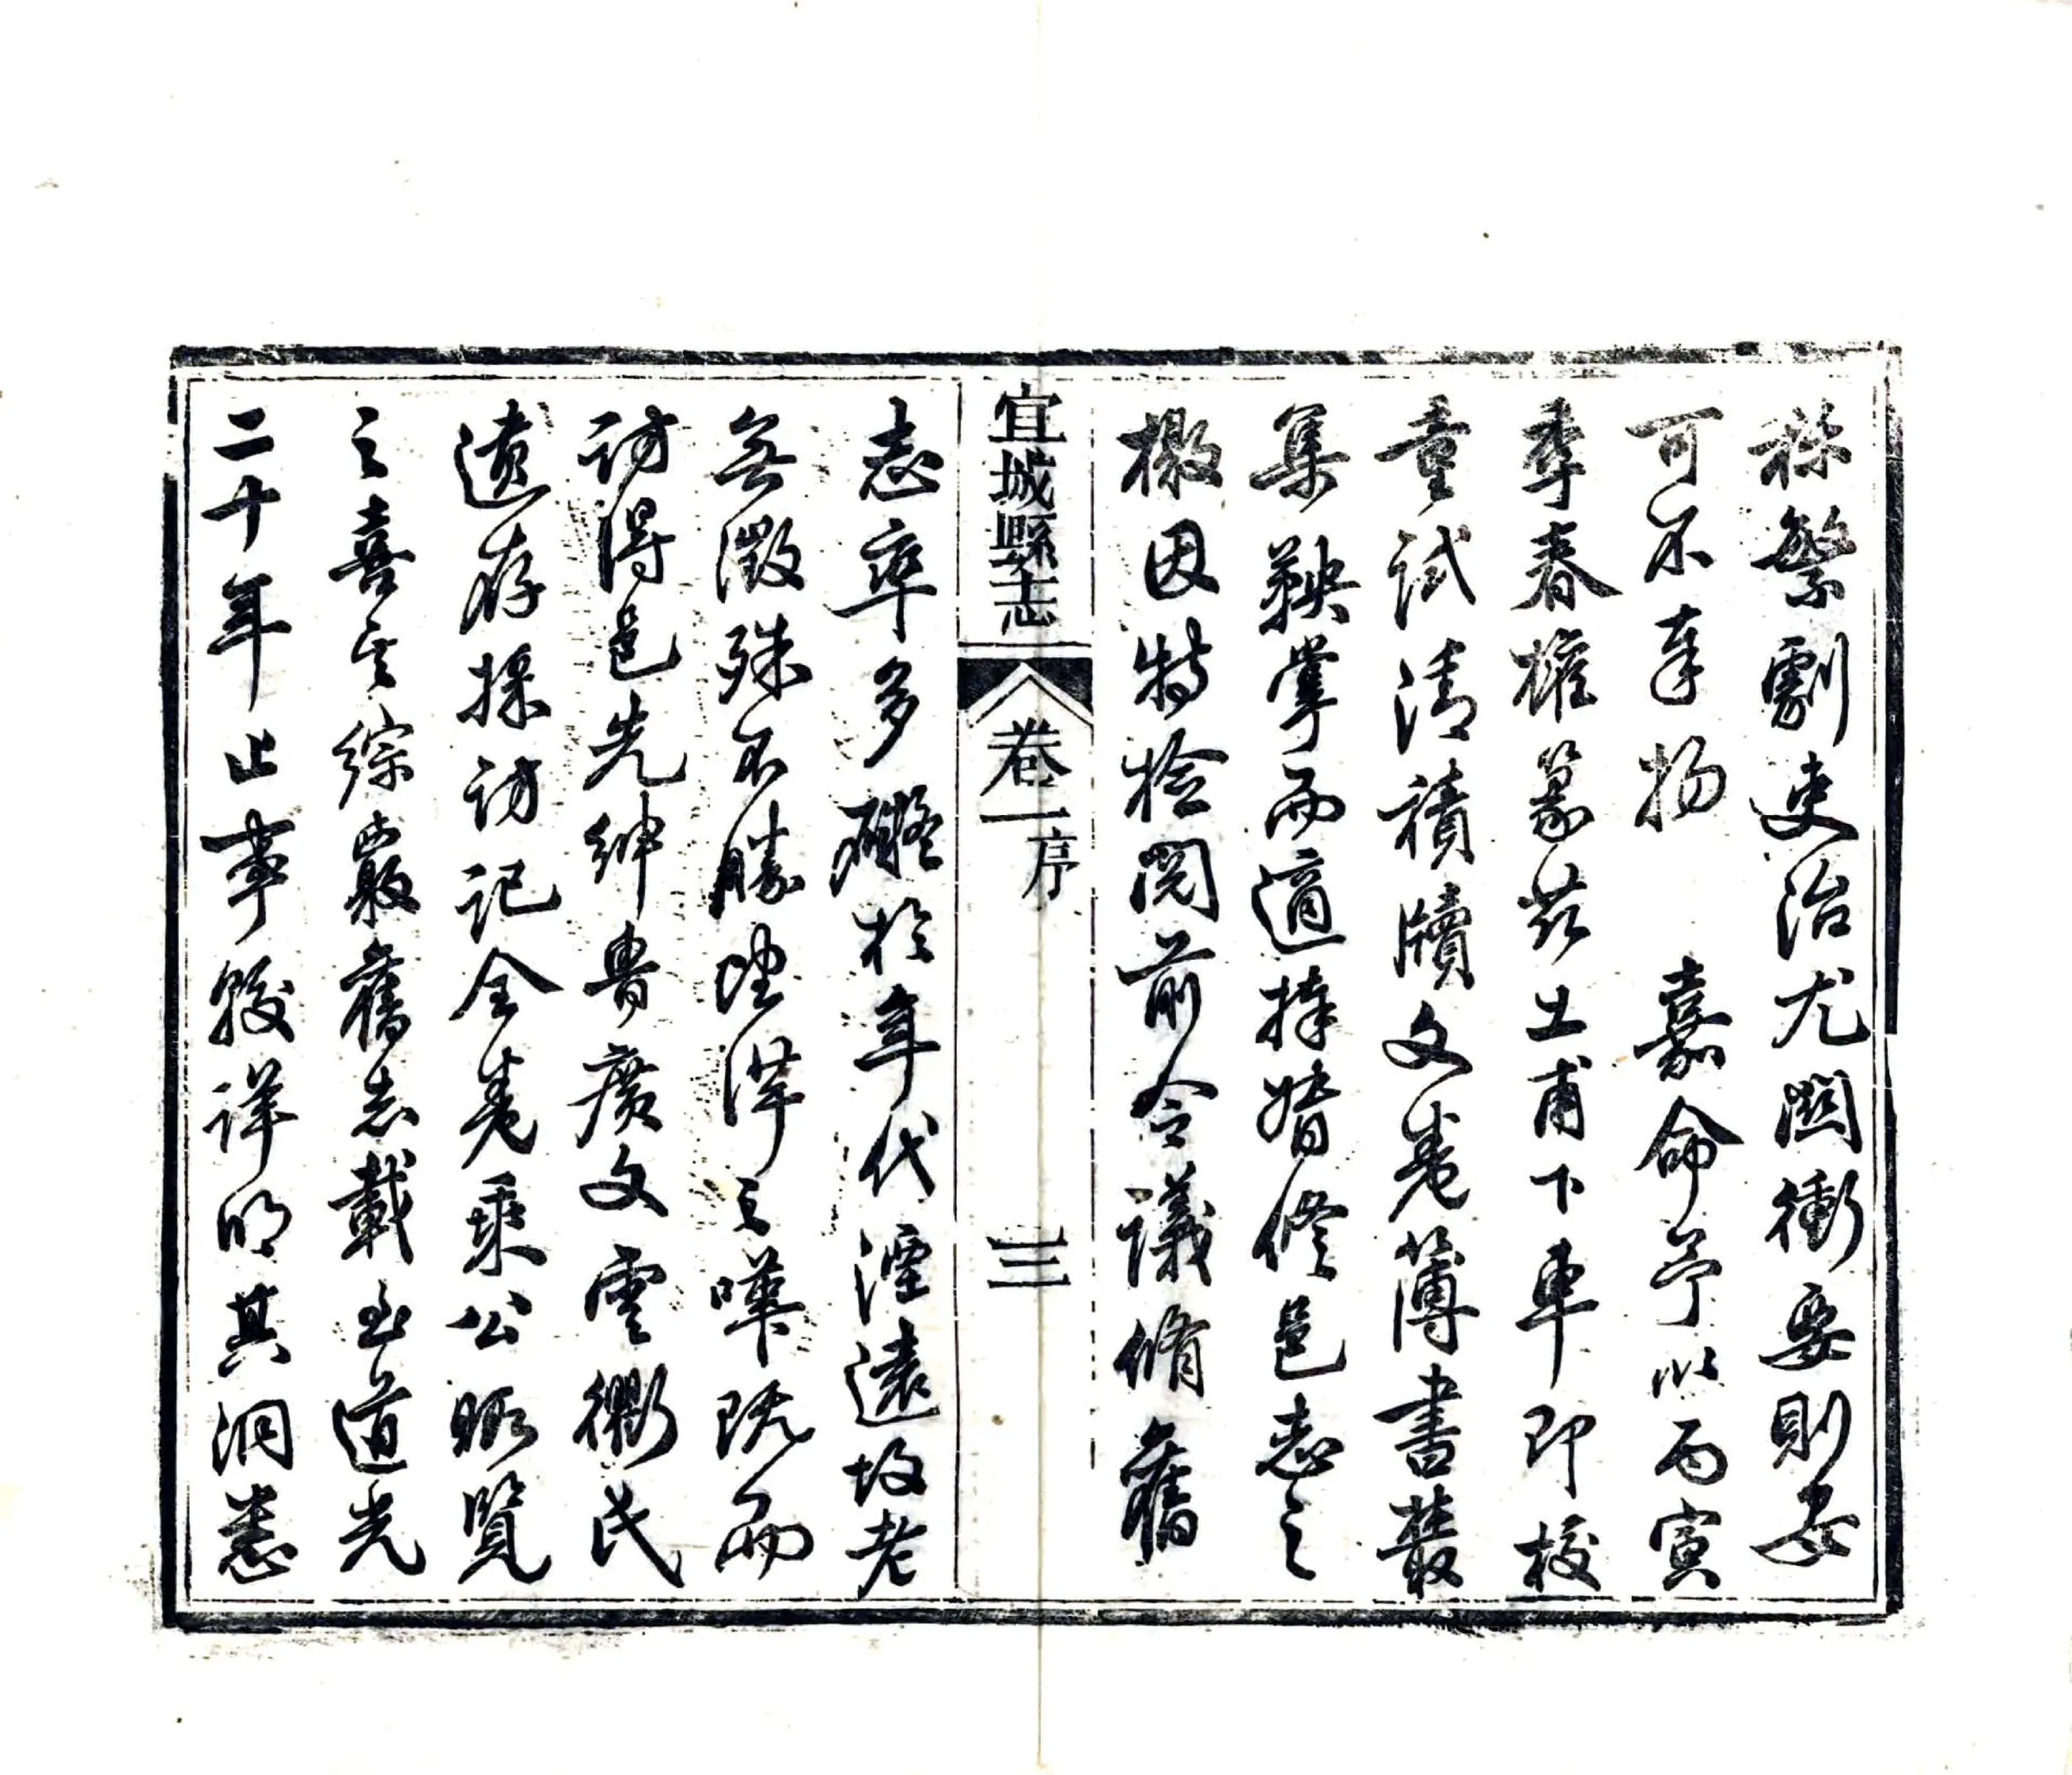 稱繁劇吏治尤關衝要則安
可不率物　嘉命予以丙寅
季春權篆茲土甫下車即校
童試清積牘文卷簿書叢
集鞅掌而適捧增修邑志之
檄因特檢閱前令議脩舊
宜城縣志
卷一
序
三
志率多礙於年代湮遠故老
無徵殊不勝望洋之嘆既而
訪得邑先紳魯廣文雲衢氏
遺存採訪記全卷乘公暇覽
之喜其綜覈舊志載至道光
二十年止事較詳明其洞悉